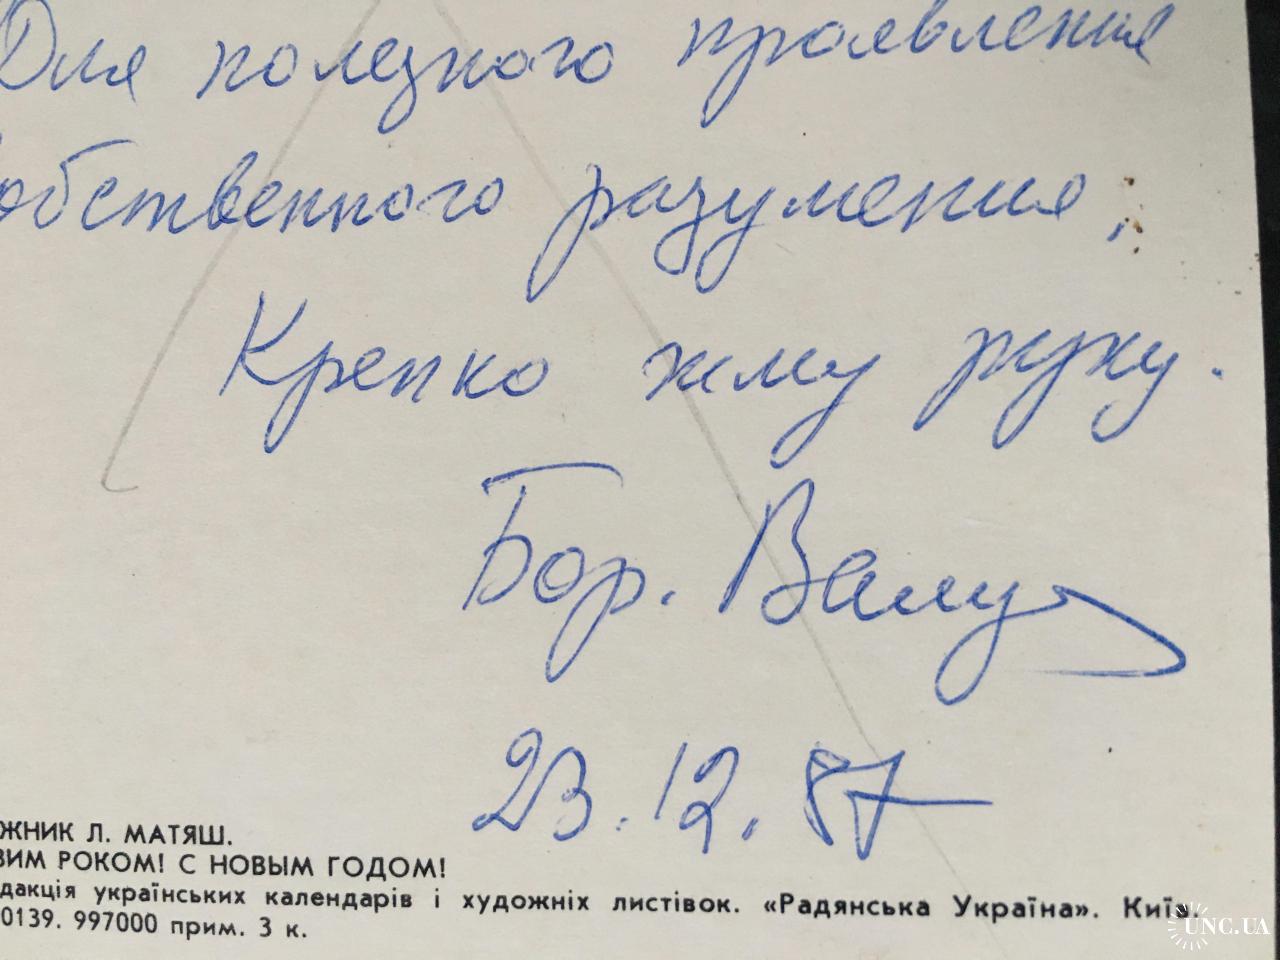 Для полезного проявления
собственного разумения,
Крепко жму руку.
Бор.
23.12.87
ЖНИК Л. МАТЯШ.
ВИМ РОКОМ! С НОВЫМ ГОДОМ!
дакція українських календарів і художніх листівок. «Радянська Україна». Київ.
0139. 997000 прим. 3 к.
UNC.UA